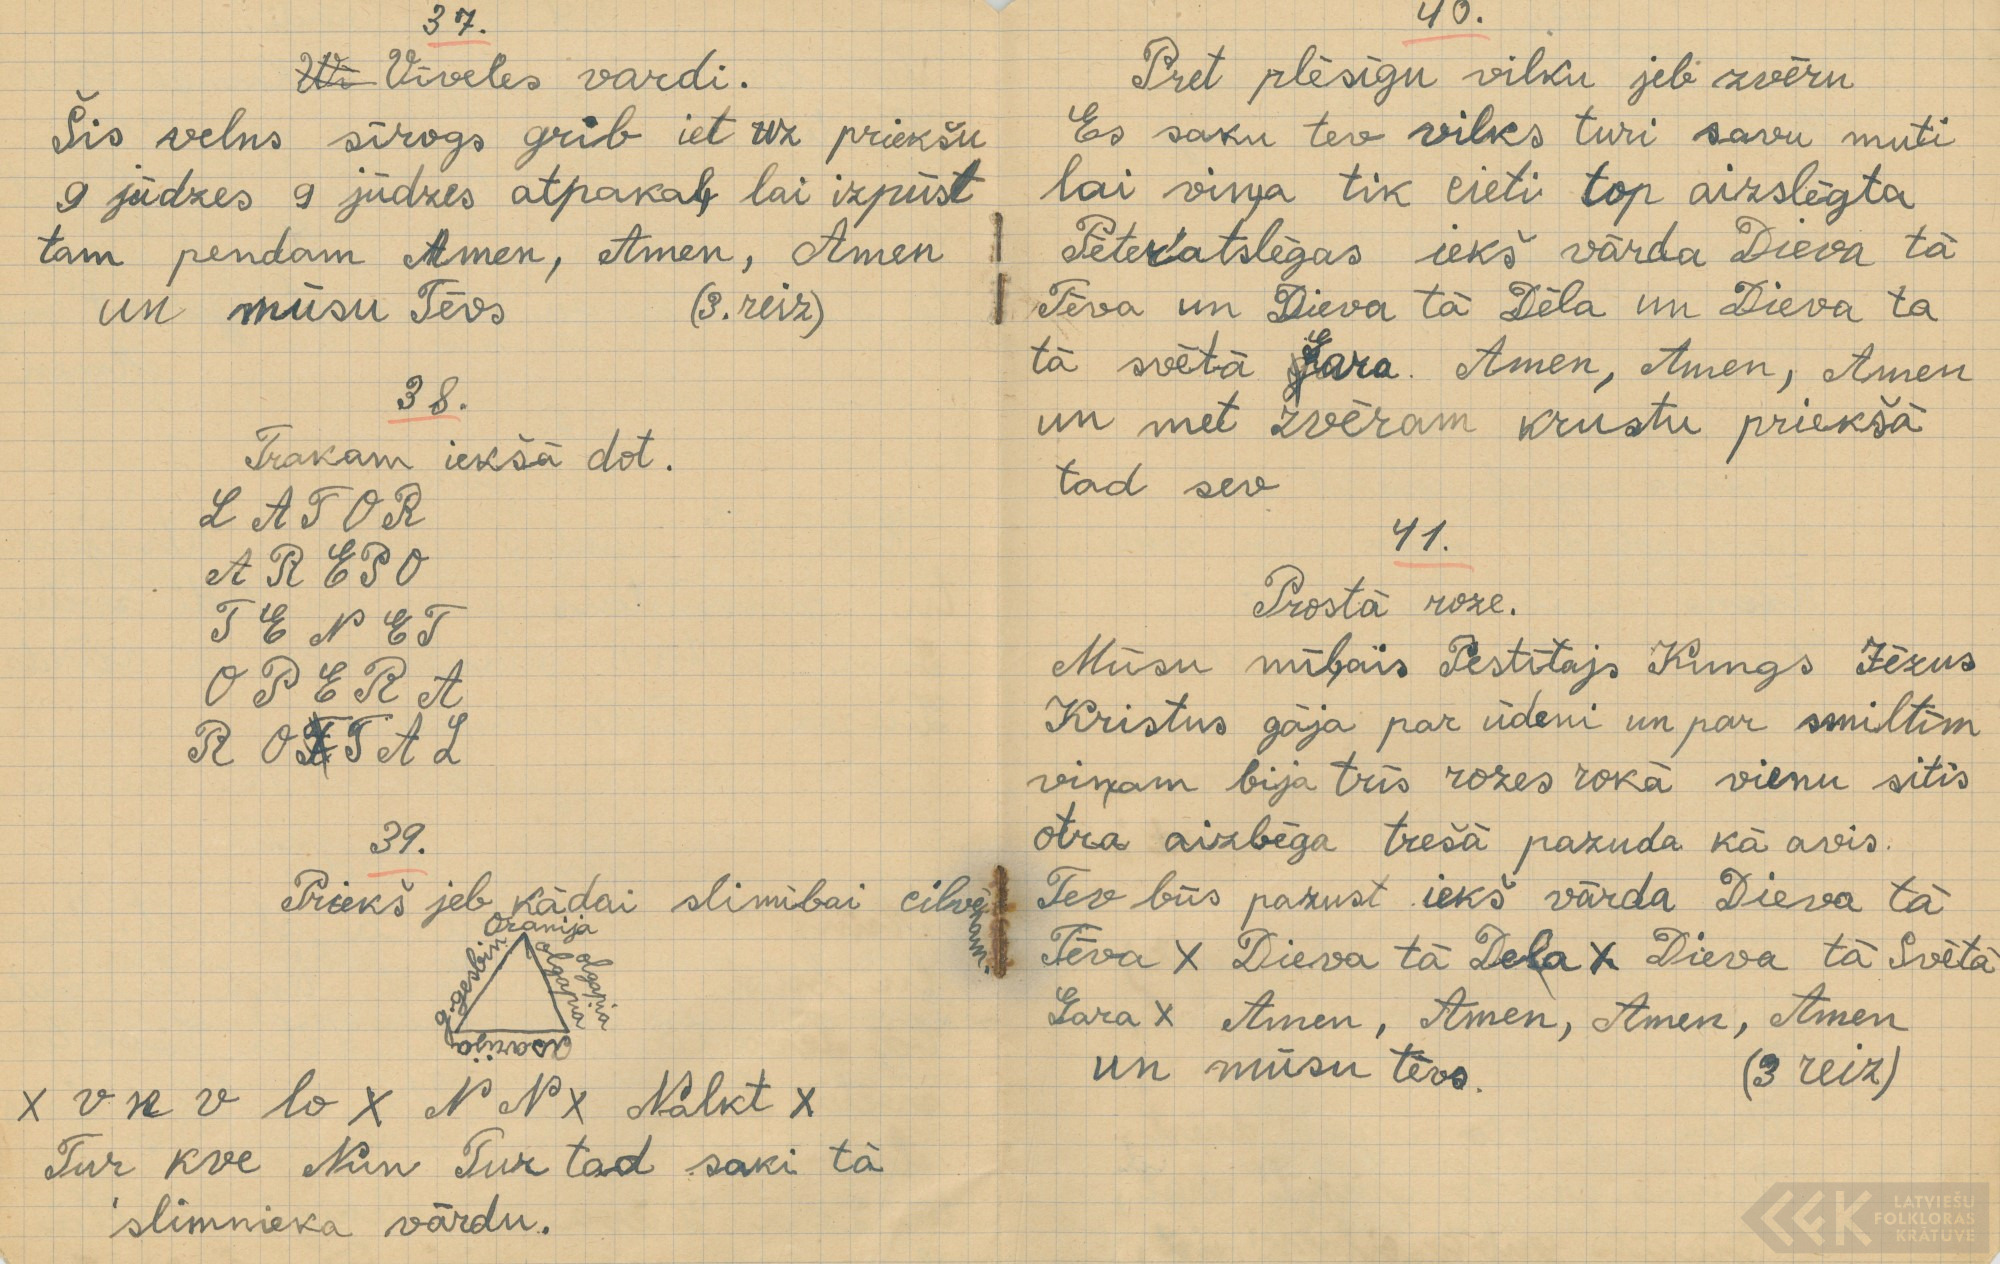 37.
Vīveles vardi.
Šis velns sīrogs grib iet uz priekšu
9 jūdzes 9 jūdzes atpakaļ lai izpūst
tam pendam Amen, Amen, Amen
un mūsu Tēvs (3. reiz)
38.
Trakam iekšā dot.
L A T O R
A R E P O
T E N E T
O P E R A
R O T A L
39.
Priekš jeb kādai slimībai cilvēkam.
Oranija
g.gesbin
olgapia
olgapia
asarija
x v n v lo x N N x Nalkt x
Tur kve Nun Tur tad saki tā
slimnieka vārdu.
40.
Pret plēsīgu vilku jeb zvēru
Es saku tev vilks turi savu muti
lai viņa tik cieti top aizslēgta
Pēter'atslēgas iekš vārda Dieva tā
Tēva un Dieva tā Dēla un Dieva ta
tā svētā Gara. Amen, Amen, Amen
un met zvēram krustu priekšā
tad sev
41.
Prostā roze.
Mūsu mīļais Pestītajs Kungs Jēzus
Kristus gāja par ūdeni un par smiltīm
viņam bija trīs rozes rokā vienu sitīs
otra aizbēga trešā pazuda kā avis.
Tev būs pazust iekš vārda Dieva tā
Tēva x Dieva tā Dela x Dieva tā Svētā
Gara x Amen, Amen, Amen, Amen
un mūsu tēvs. (3 reiz)
LATVIEŠU
FOLKLORAS
KRĀTUVE